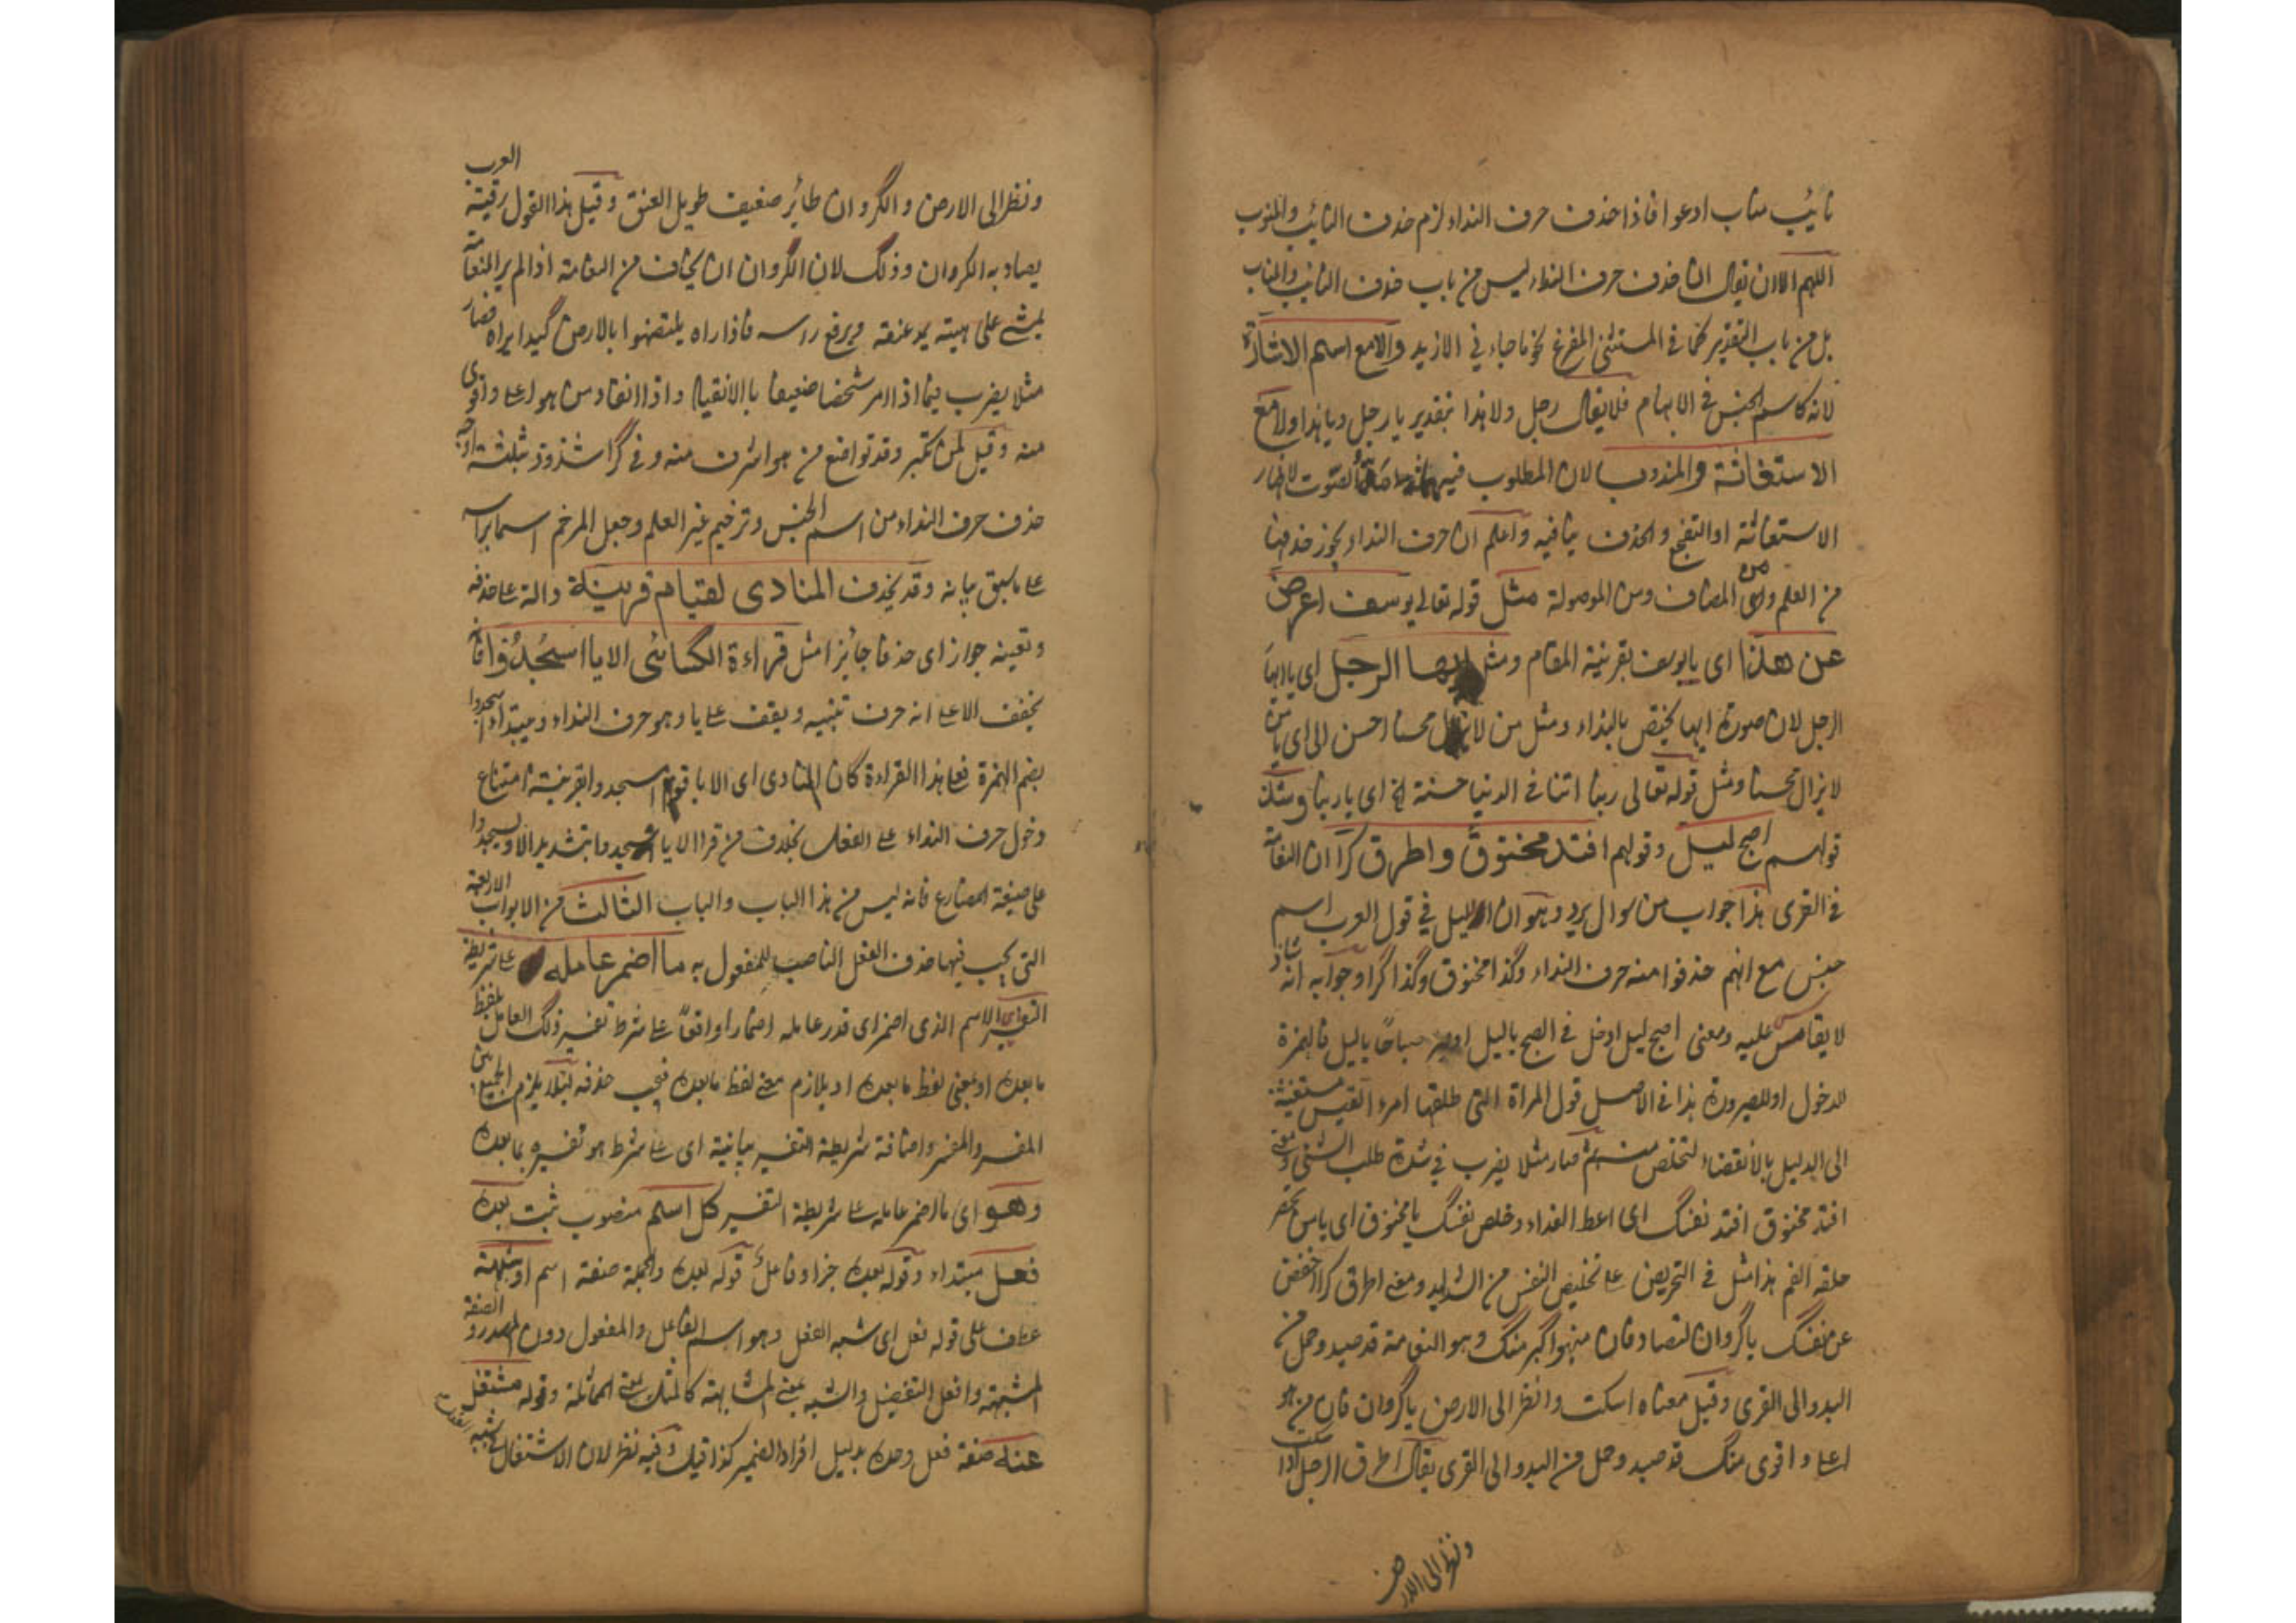 نائب مناب ادعوا فاذا حذف حرف النداء لزم حذف النائب والمنوب
اللهم الا ان يقال ان حذف حرف النداء ليس من باب حذف النائب والمناب
بل من باب التقدير كما في المستثنى المفرغ نحو ما جاءني الا زيد والا مع اسم الاشارة
لانه كاسم الجنس في الابهام فلا يقال رجل ولا هذا بتقدير يا رجل ويا هذا ولا مع
الاستغاثة والمندوب لان المطلوب فيهما الصوت لاظهار
الاستغاثة او التفجع والحذف ينافيه واعلم ان حرف النداء يجوز حذفها
من العلم ومن المضاف ومن الموصولة مثل قوله تعالى يوسف اعرض
عن هذا اى يا يوسف بقرينة المقام ومثل ايها الرجل اى يا ايها
الرجل لان صورة ايها يختص بالنداء ومثل من لا يزال محسنا احسن الى اى يا من
لا يزال محسنا ومثل قوله تعالى ربنا اتنا في الدنيا حسنة الخ اى يا ربنا وشذ
قولهم اصبح ليل وقولهم افتد مخنوق واطرق كرا ان النعامة
في القرى هذا جواب من سوال يرد وهو ان الليل في قول العرب اسم
جنس مع انهم حذفوا منه حرف النداء وكذا مخنوق وكذا كرا وجوابه انه شاذ
لا يقاس عليه ومعنى اصبح ليل ادخل في الصبح ياليل او صر صباحًا ياليل فالهمزة
للدخول او للصيرورة هذا في الاصل قول المراة التي طلقها امرء القيس مستغيثة
الى الليل بالانقضاء لتخلص منه ثم صار مثلا يضرب في شدة طلب الشئ ومعنى
افتد مخنوق افتد نفسك اى اعط الفداء وخلص نفسك يا مخنوق اى يا من
حلقه الفم هذا مثل في التحريض على تخليص النفس من الشدايد ومعنى اطرق كرا اخفض
عن نفسك يا كروان لتصاد فان من هو اكبر منك وهو النعامة قد صيد وحمل من
البدو الى القرى وقيل معناه اسكت وانظر الى الارض يا كروان فان من هو
اعلى واقوى منك قد صيد وحمل من البدو الى القرى يقال اطرق الرجل اذا سكت
ونظر الى الارض
ونظر الى الارض والكروان طائر ضعيف طويل العنق وقيل هذا القول رقية العرب
يصاد به الكروان وذلك لان الكروان ان يخاف من النعامة اذا لم ير النعامة
يمشي على هيئة يمد عنقه ويرفع راسه فاذا راه يلتصق بالارض كيلا يراه فصار
مثلا يضرب فيما اذا امر شخصا ضعيفا بالانقياد واذا انقاد من هو اعلى واقوى
منه وقيل لمن تكبر وقد تواضع من هو اشرف منه وفي كرا شذوذ ثلثة اوجه
حذف حرف النداء من اسم الجنس وترخيم غير العلم وجعل المرخم اسما براسه
على ما سبق بيانه وقد يحذف المنادى لقيام قرينة دالة على حذفه
وتعينه جوازا اى حذفا جائزا مثل قراءة الكسائى الا يا اسجدوا فانه
يخفف الا على انه حرف تنبيه ويقف على يا وهو حرف النداء ويبتدا اسجدوا
بضم الهمزة فعلى هذا القراءة كان المنادى اى الا يا قوم اسجدوا بقرينة امتناع
دخول حرف النداء على الفعل بخلاف من قرا الا يا اسجدوا بتشديد الا ويسجدوا
على صيغة المضارع فانه ليس من هذا الباب والباب الثالث من الابواب الاربعة
التي يجب فيها حذف الفعل الناصب للمفعول به ما اضمر عامله على شريطة
التفسير اى الاسم الذى اضمر اى قدر عامله اضمارا واقعًا على شرط تفسير ذلك العامل بلفظ
ما بعده او بمعنى لفظ ما بعده او بلازم معنى لفظ ما بعده فيجب حذفه لئلا يلزم الجمع بين
المفسر والمفسر واضافة شريطة التفسير بيانية اى على شرط هو تفسيره بما بعده
وهو اى ما اضمر عامله على شريطة التفسير كل اسم منصوب ثبت بعده
فعل مبتداء وقوله بعده خبر او فاعل قوله بعده والجملة صفة اسم او شبهه
عطف على قوله فعل اى شبه الفعل وهو اسم الفاعل والمفعول دون المصدر والصفة
المشبهة وافعل التفضيل والشبه بمعنى المشابهة كالمثل بمعنى المماثلة وقوله مشتغل
عنه صفة فعل وحده بدليل افراد الضمير كذا قيل وفيه نظر لان الاشتغال